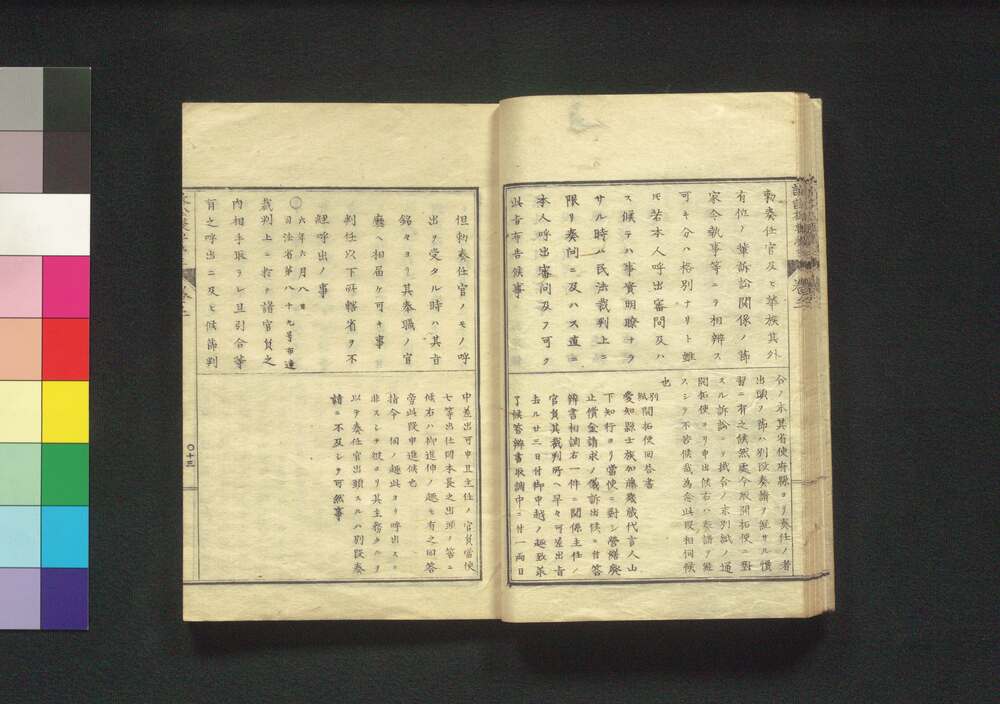 勅奏任官及ヒ華族其外
有位ノ輩訴訟關係ノ節
家令執事等ニヲ相辨ス
可キ分ハ格別ナリト雖
𪜈若本人呼出審問及ハ
ス候テハ事實明瞭ナラ
サル時ハ民法裁判上ニ
限リ奏問ニ及ハス直ニ
本人呼出審問及フ可ク
此旨布告候事
合ノ末其省使府縣ヨリ奏任ノ者
出頭ヲ節ハ別段奏請ヲ經サル慣
習ニ有之候然處今般開拓使ニ對
スル訴訟ニ
開拓使ヨリ申出候右ハ奏請ヲ經
スシテ不苦候哉為念此段相伺候
也
別紙開拓使回答書
愛知縣士族加藤幾蔵代言人山
下知行ヨリ當使ニ對シ營繕興
止償金請求ノ儀訴出候ニ付答
辨書相調右一件ニ關係主任ノ
官員其裁判所ヘ早々可差出旨
去ル廿三日付御申越ノ趣致承
了候答辨書取調中ニ付一両日
但勅奏任官ノモノ呼
出ヲ受タル時ハ其旨
銘々ヨリ其奉職ノ官
廳ヘ相届ケ可キ事
判任以下所轄省ヲ不
經呼出ノ事
〇六年六月八日司法省第八十九号布達
裁判上ニ於テ諸官員之
内相手取ラレ且引合等
有之呼出ニ及ヒ候節判
中差出可申且主任ノ官員當使
七等出仕岡本長之出頭ノ筈ニ
候右ハ御進伸ノ趣モ有之回答
旁此段申進候也
指令 伺ノ趣此ヨリ呼出スニ
非スシテ彼ヨリ其主務タルヲ
以テ奏任官出頭スルハ別段奏
請ニ不及シテ可然事
〇十三